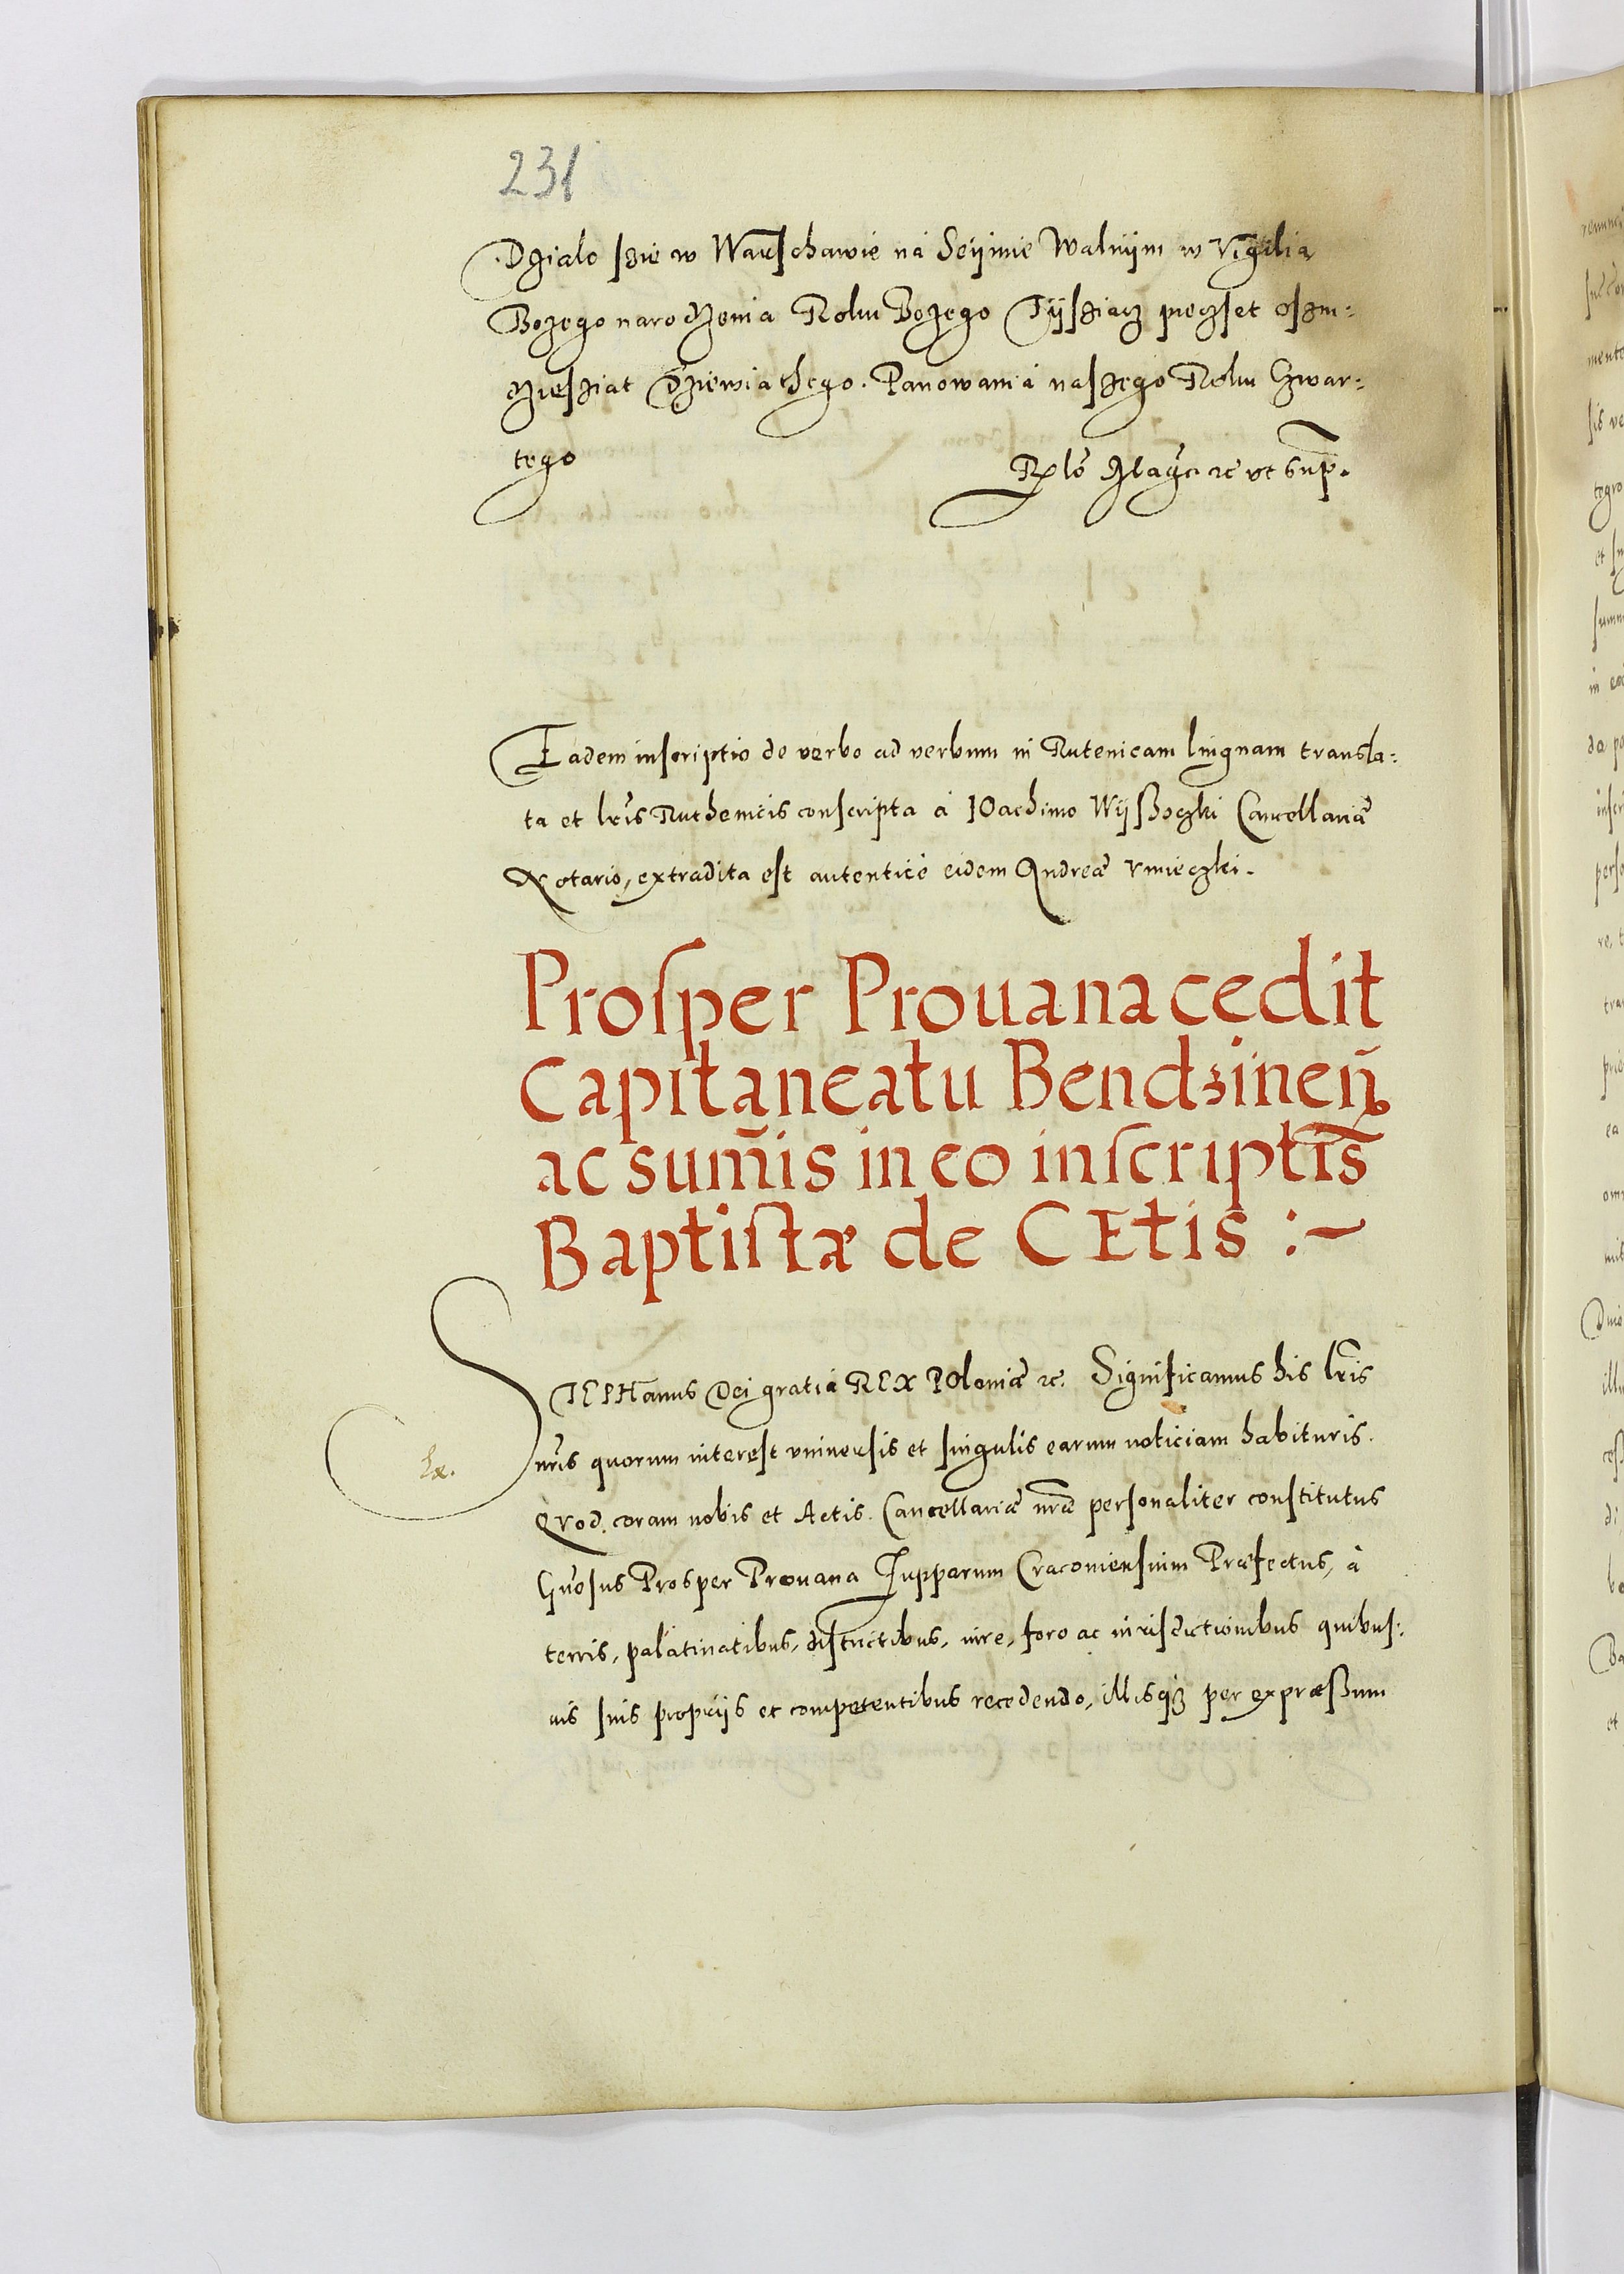 231
Dzialo szie w Warschawie ná Seÿmie Walnÿm w Vigilia
Bozego narodzenia Roku Bozego Tÿsziacz pieczset oszm=
dziesziat Dziewiathego. Panowaniá naszego Roku Czwar=
tego
Rlō ut sup.
Eadem inscriptio de verbo ad verbum in Rutenicam linguam transla=
ta et lrīs Ruthenicis conscripta á IOachimo Wÿsoczki Cancellariæ
Notario, extradita est autenticé eidem Andreæ Vmieczki.
Prosper Prouana cedit
Capitaneatu Bendzineñ
ac sum̄is in eo inscriptis
Baptistæ de CEtis :~
STEPHanus Dei gratia REX POloniæ &c. Significamus his lrīs
nrīs quorum interest vniuersis et singulis earum noticiam habituris.
Qvod coram nobis et Actis Cancellariæ nræ personaliter constitutus
Gnōsus Prosper Prouana Zupparum Cracouiensium Præfectus, á
terris, palatinatibus, districtibus, iure, foro ac iurisdictionibus quibus=
uis suis proprijs et competentibus recedendo, illisq; per expræssum